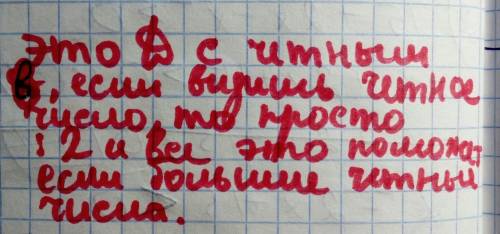 это D с читным
в, если видишь читное
число, то просто
: 2 и все это поможет
если большие читные
числа.